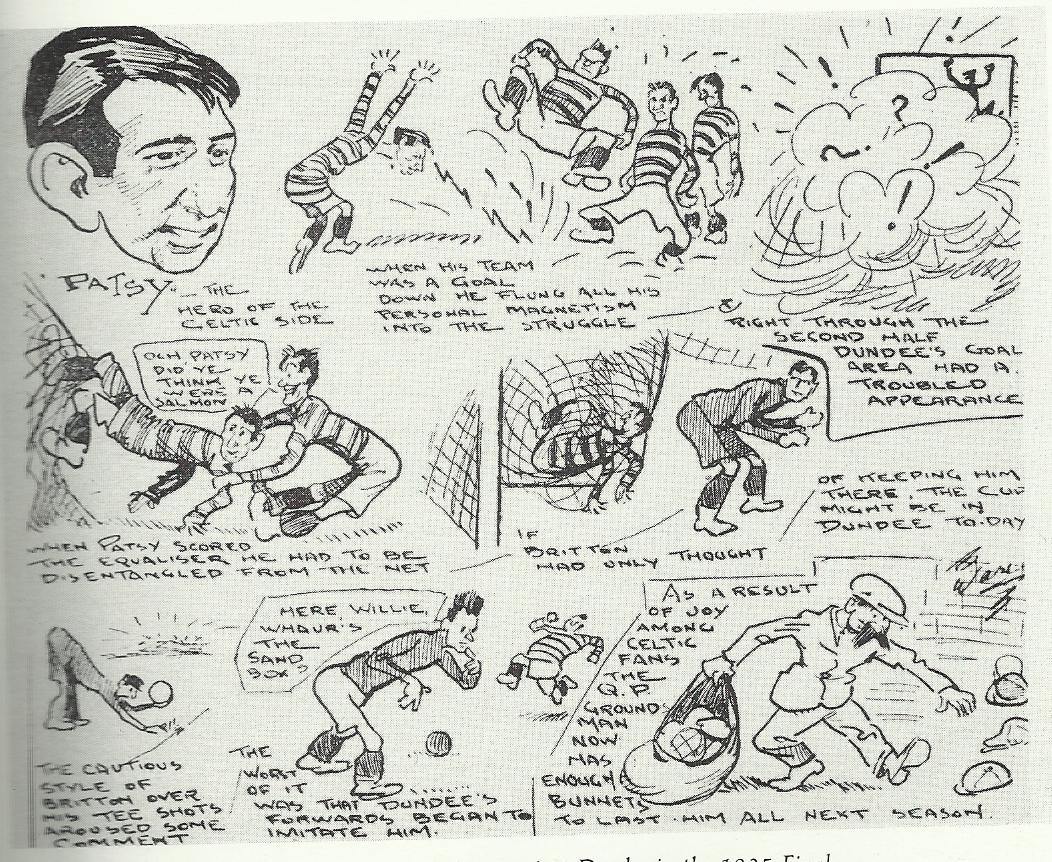 "PATSY" — THE
HERO OF THE
CELTIC SIDE
WHEN HIS TEAM
WAS A GOAL
DOWN HE FLUNG ALL HIS
PERSONAL MAGNETISM
INTO THE STRUGGLE — &
RIGHT THROUGH THE
SECOND HALF
DUNDEE'S GOAL
AREA HAD A
TROUBLED
APPEARANCE
OCH PATSY
DID YE
THINK YE
WERE A
SALMON
WHEN PATSY SCORED
THE EQUALISER HE HAD TO BE
DISENTANGLED FROM THE NET
IF
BRITTON
HAD ONLY THOUGHT
OF KEEPING HIM
THERE, THE CUP
MIGHT BE IN
DUNDEE TO-DAY
THE CAUTIOUS
STYLE OF
BRITTON OVER
HIS TEE SHOTS
AROUSED SOME
COMMENT
HERE, WILLIE,
WHAUR'S
THE
SAND
BOX?
THE
WORST
OF IT
WAS THAT DUNDEE'S
FORWARDS BEGAN TO
IMITATE HIM.
AS A RESULT
OF JOY
AMONG
CELTIC
FANS
THE
Q.P.
GROUNDS
MAN
NOW
HAS
ENOUGH
BUNNETS
TO LAST HIM ALL NEXT SEASON.
in the 1925 Final